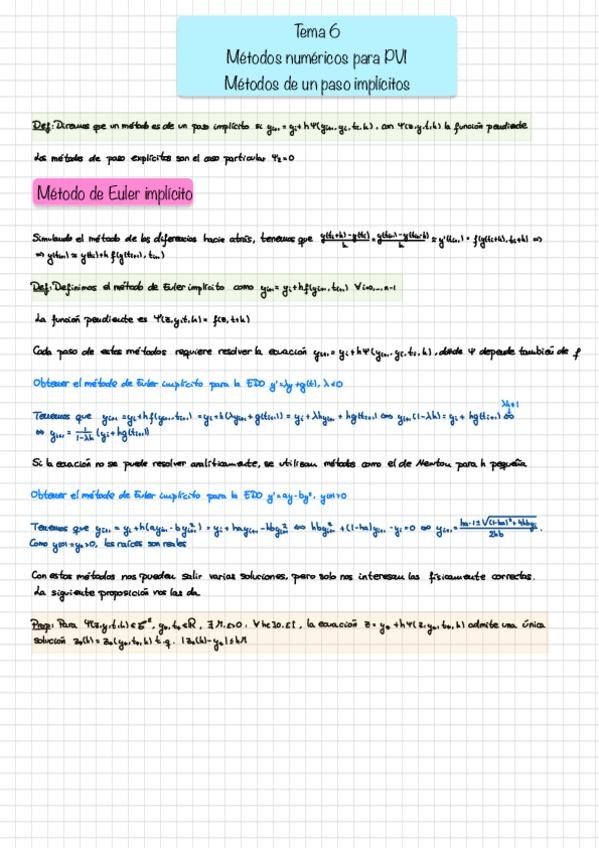 Tema 6
Métodos numéricos para PVI
Métodos de un paso implícitos
Def: Diremos que un método es de un paso implícito si y_{i+1} = y_i + hΨ(y_{i+1}, y_i, t_i, h), con Ψ(z, y, t, h) la función pendiente
Los métodos de paso explícitos son el caso particular Ψ_z = 0
Método de Euler implícito
Simulando el método de las diferencias hacia atrás, tenemos que
⇒ y(t_{i+1}) ≈ y(t_i) + h f(y(t_{i+1}), t_{i+1})
Def: Definimos el método de Euler implícito como y_{i+1} = y_i + hf(y_{i+1}, t_{i+1}) ∀i=0,...,n-1
La función pendiente es Ψ(z, y, t, h) = f(z, t+h)
Cada paso de estos métodos requiere resolver la ecuación y_{i+1} = y_i + hΨ(y_{i+1}, y_i, t_i, h), donde Ψ depende también de f
Obtener el método de Euler implícito para la EDO y' = λy + g(t), λ<0
Tenemos que y_{i+1} = y_i + hf(y_{i+1}, t_{i+1}) = y_i + h(λy_{i+1} + g(t_{i+1})) = y_i + λhy_{i+1} + hg(t_{i+1}) ⇔ y_{i+1}(1-λh) = y_i + hg(t_{i+1}) ⇔
⇔ y_{i+1} = 1/(1-λh) (y_i + hg(t_{i+1}))
Si la ecuación no se puede resolver analíticamente, se utilizan métodos como el de Newton para h pequeña
Obtener el método de Euler implícito para la EDO y' = ay - by², y(0)>0
Tenemos que y_{i+1} = y_i + h(ay_{i+1} - by²_{i+1}) = y_i + hay_{i+1} - hby²_{i+1} ⇔ hby²_{i+1} + (1-ha)y_{i+1} - y_i = 0 ⇔ y_{i+1} = (ha-1±√((1-ha)²+4hby_i))/2hb.
Como y(0) = y_0 > 0, las raíces son reales
Con estos métodos nos pueden salir varias soluciones, pero solo nos interesan las físicamente correctas.
La siguiente proposición nos las da.
Prop: Para Ψ(z, y, t, h) ∈ , y_0, t_0 ∈ R, ∃ , ε>0, ∀h∈]0,ε[, la ecuación z = y_0 + hΨ(z, y_0, t_0, h) admite una única
solución z_0(h) = z_0(y_0, t_0, h) t.q. |z_0(h) - y_0| ≤